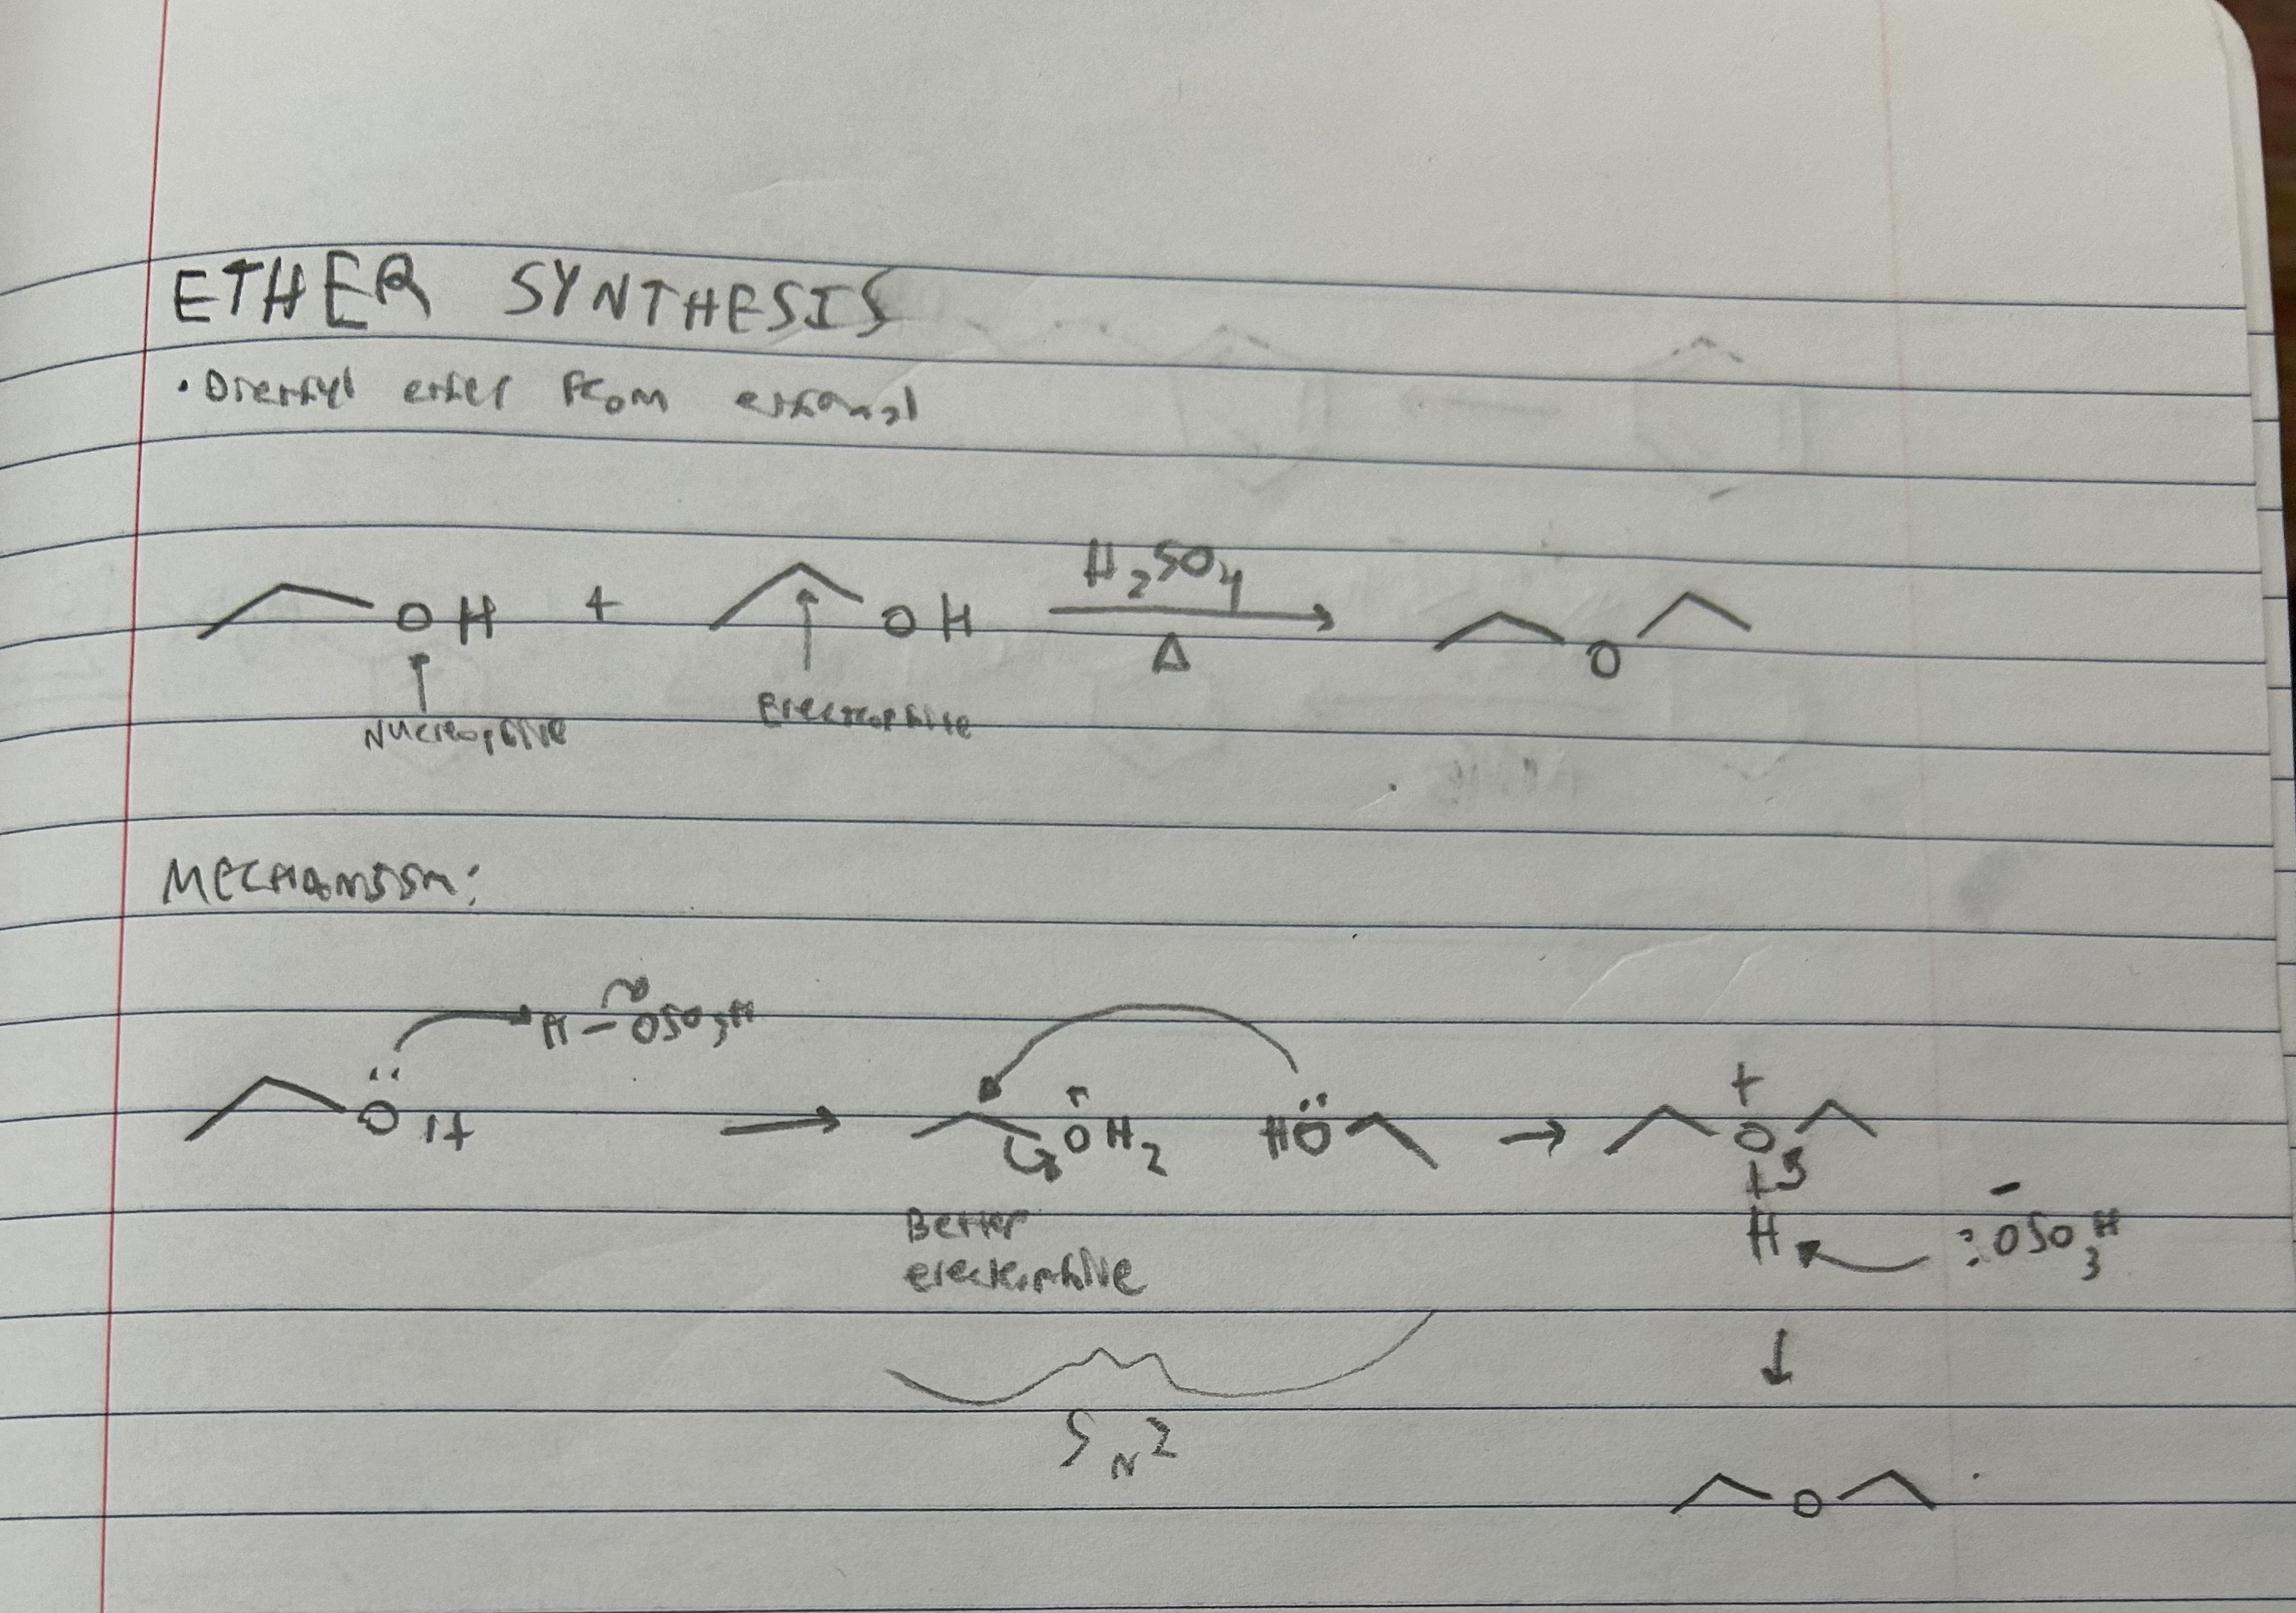 ETHER SYNTHESIS
• Diethyl ether from ethanol
OH + OH H₂SO₄ Δ O
Nucleophile Electrophile
MECHANISM:
H–OSO₃H
ÖH → ⁺OH₂ HÖ → O⁺
Better H ⁻:OSO₃H
electrophile
↓
S_N2
O